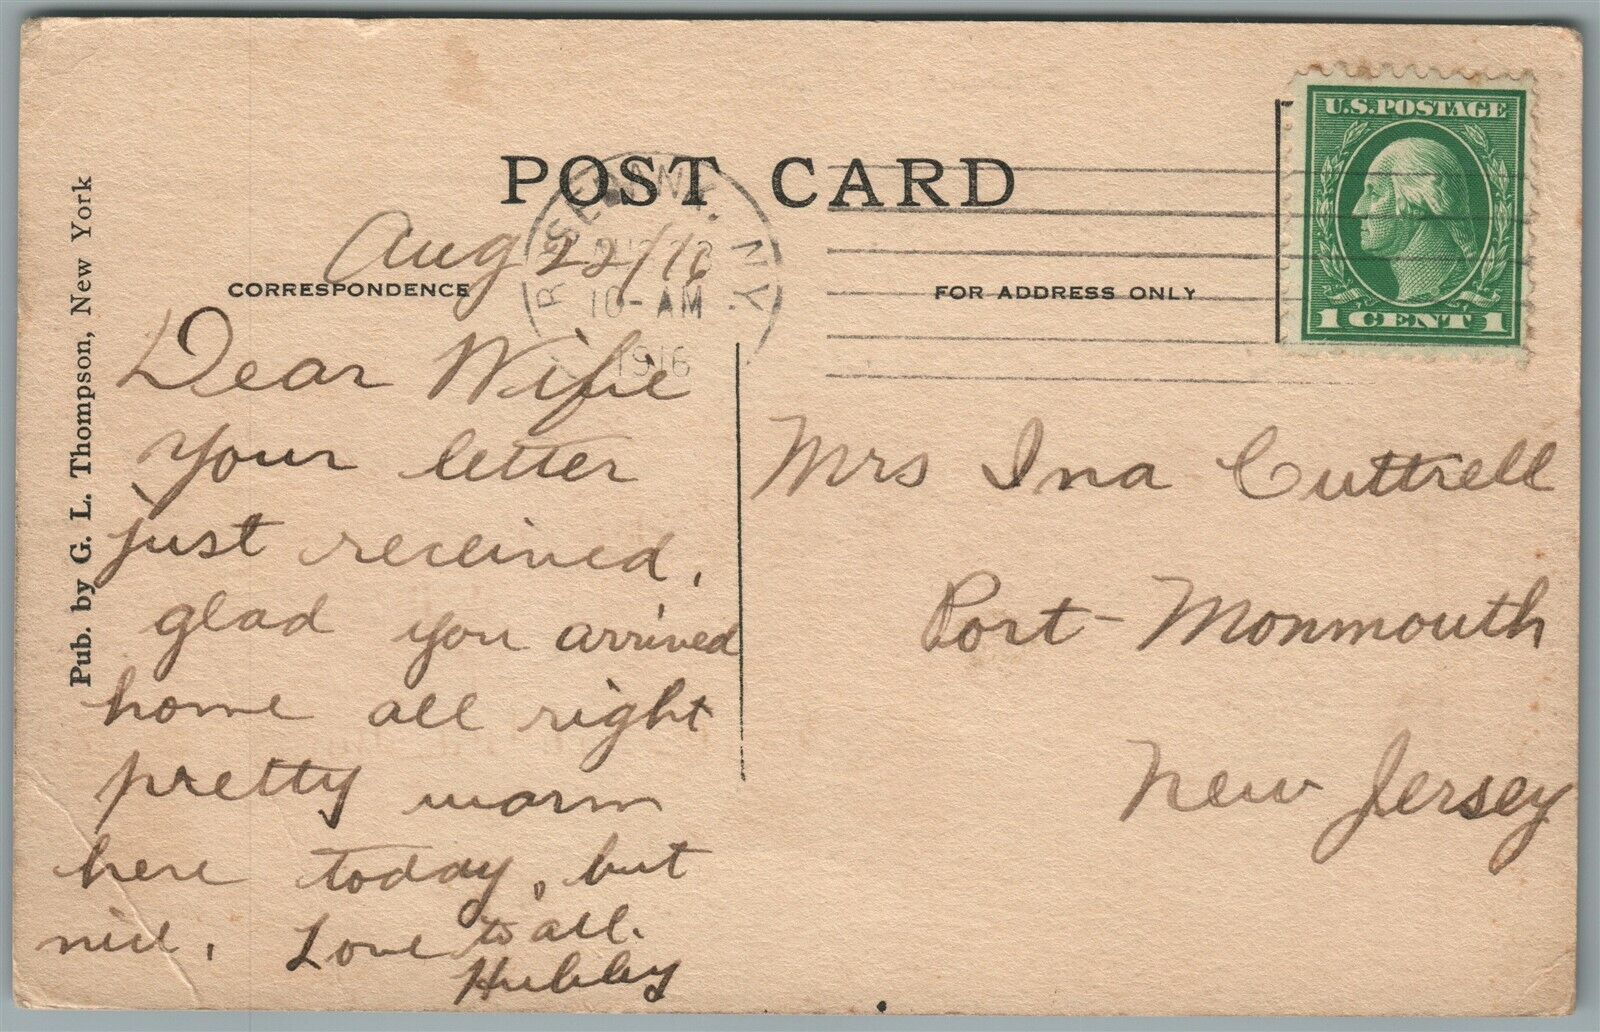 POST CARD
U.S. POSTAGE
1 CENT 1
10-AM
1916
N.Y.
Aug 22/16
CORRESPONDENCE
FOR ADDRESS ONLY
Pub. by G. L. Thompson, New York
Dear Wifie
Your letter
just received,
glad you arrived
home all right
pretty warm
here today, but
nice. Love to all.
Hubby
Mrs Ina Cuttrell
Port-Monmouth
New Jersey